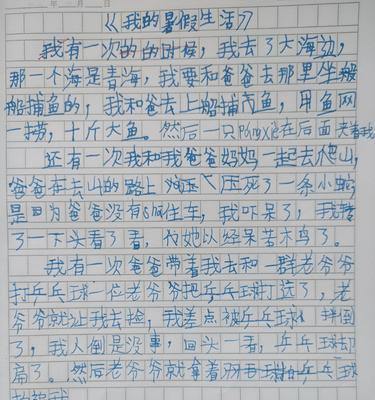 《我的暑假生活》
我有一次的的时候，我去了大海边，
那一个海是青海，我要和爸爸去那里坐船
船捕鱼的，我和爸去上船捕鱼，用鱼网
一捞，十斤大鱼。然后一只在后面夹着我
还有一次我和我爸爸妈妈一起去爬山，
爸爸在去山的路上压死了一条小蛇
是因为爸爸没有住车，我吓呆了，我转
了一下头看了看，她以经呆若木鸟了。
我有一次爸爸带着我去和一群老爷爷
打乒乓球一位老爷爷把乒乓球打远了，老
爷爷就让我去捡，我差点被乒乓球倒
了，我人倒是没事，回头一看，乒乓球却
扁了。然后老爷爷就拿着乒乓球